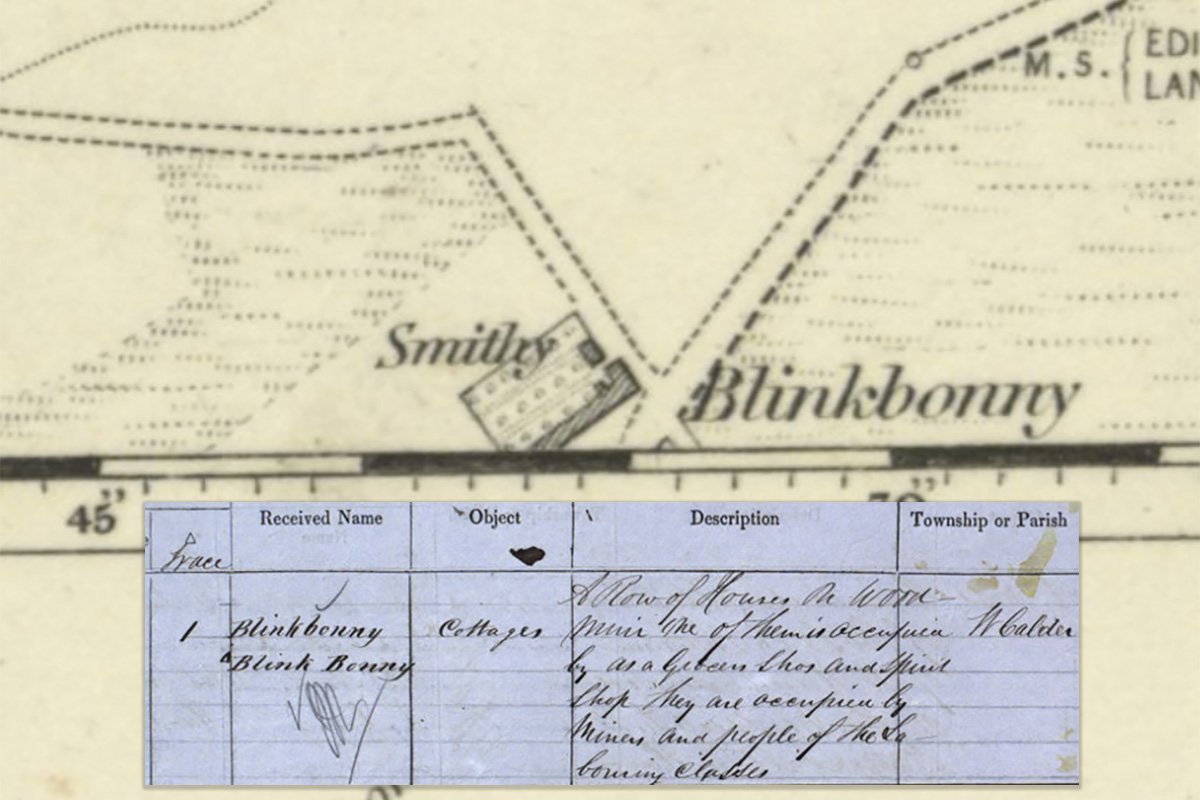 M.S.
EDI
LAN
Smithy
Blinkbonny
45"
Trace
Received Name
Object
Description
Township or Parish
A Row of Houses On Wood-
1 Blinkbonny Cottages Muir One of them is occupied W Calder
Blink Bonny by as a Grocers Shop and Spirit
Shop They are occupied by
Miners and people of the La-
bouring Classes